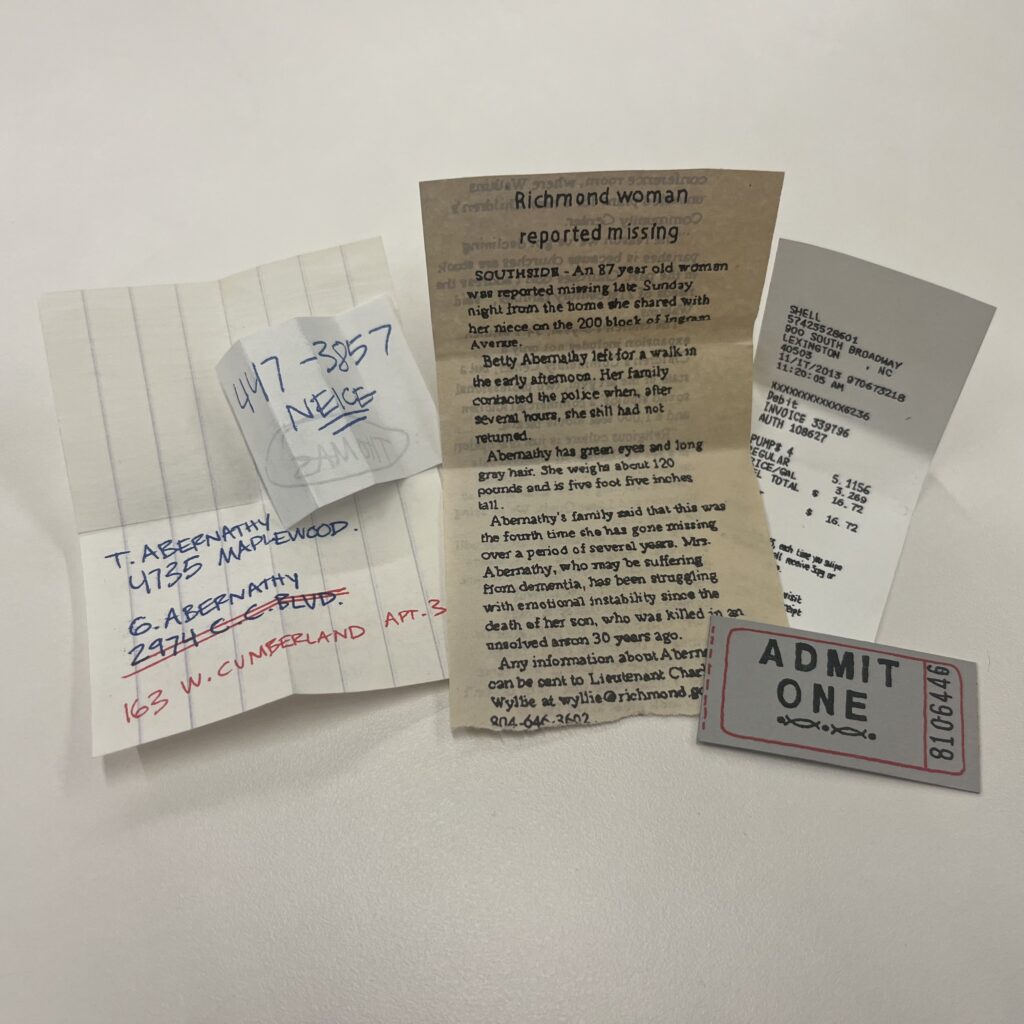 447-3857
NEICE
THOMAS
T. ABERNATHY
4735 MAPLEWOOD.
G. ABERNATHY
2974 C C BLVD.
163 W. CUMBERLAND APT. 3
Richmond woman
reported missing
SOUTHSIDE - An 87 year old woman
was reported missing late Sunday
night from the home she shared with
her niece on the 200 block of Ingram
Avenue.
Betty Abernathy left for a walk in
the early afternoon. Her family
contacted the police when, after
several hours, she still had not
returned.
Abernathy has green eyes and long
gray hair. She weighs about 120
pounds and is five foot five inches
tall.
Abernathy's family said that this was
the fourth time she has gone missing
over a period of several years. Mrs.
Abernathy, who may be suffering
from dementia, has been struggling
with emotional instability since the
death of her son, who was killed in an
unsolved arson 30 years ago.
Any information about Abern
can be sent to Lieutenant Char
Wyllie at wyllie@richmond.go
804-646-3602
SHELL
57425528601
900 SOUTH BROADWAY
LEXINGTON , NC
40503
11/17/2013 970673218
11:20:05 AM
XXXXXXXXXXXX6236
Debit
INVOICE 339796
AUTH 108627
PUMP# 4
REGULAR 5.1156
RICE/GAL 3.269
EL TOTAL $ 16.72
$ 16.72
each time you swipe
receive 3cpg or
visit
ADMIT
ONE
8106446